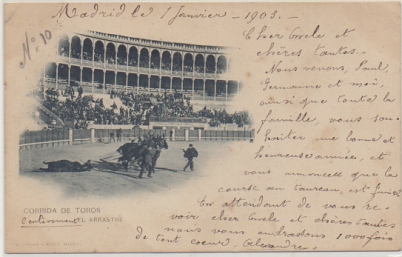 Madrid le 1 Janvier - 1903. -
N. 10
Cher Oncle et
chères tantes. -
Nous venons, Paul,
Germaine et moi,
ainsi que toute la
famille, vous sou-
haiter une bonne et
heureuse année, et
vous annoncer que la
course au taureau, est finie
En attendant de vous re-
voir cher Oncle et chères tantes
nous vous embrassons 1000 fois
de tout coeur. Alexandre.
CORRIDA DE TOROS
EL ARRASTRE